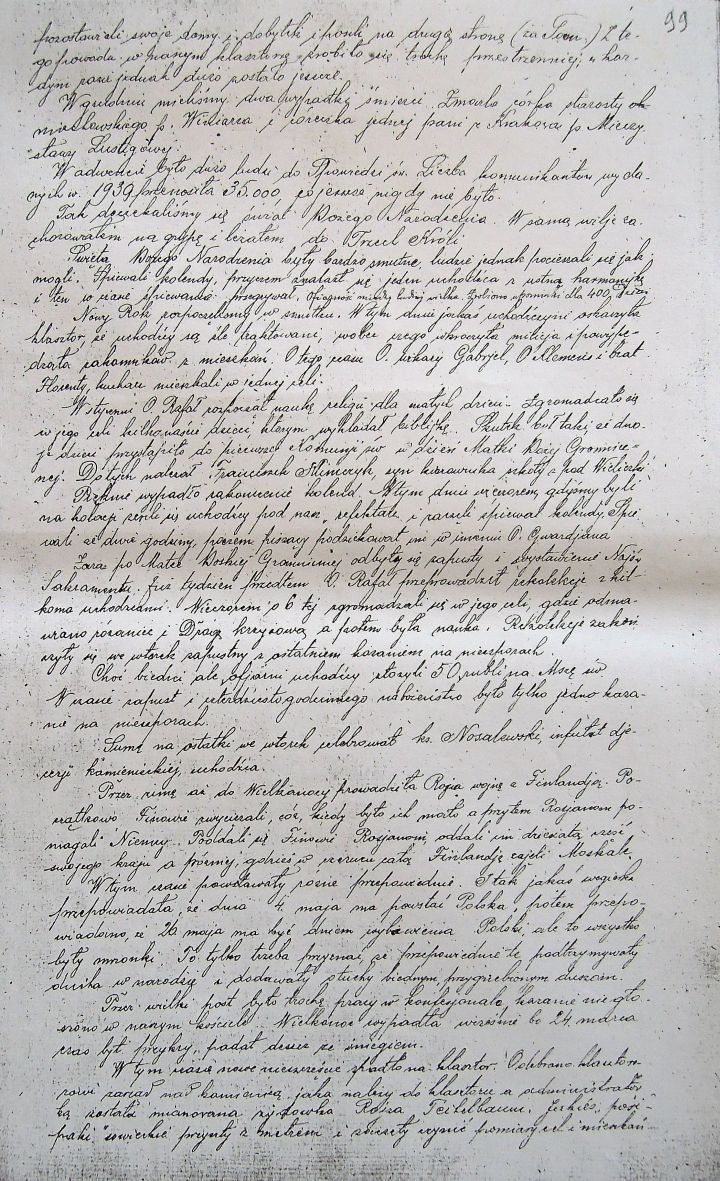 99
pozostawiali swoje domy i dobytki i poszli na drugą stronę (za San.) Z te-
go powodu w naszym klasztorze zrobiło się trochę przestrzenniej, w każ-
dym razie jednak dużo zostało jeszcze.
W grudniu mieliśmy dwa wypadki śmierci. Zmarła córka starosty
p. Wisliarca i córeczka jednej pani z Krakowa p. Mieczy-
sławy Lustigowej.
W adwencie było dużo ludzi do Spowiedzi św. Liczba komunikantów wyda-
nych w r. 1939 przenosiła 35.000, co jeszcze nigdy nie było.
Tak doczekaliśmy się świąt Bożego Narodzenia. W samą wilję za-
chorowałem na grypę i leżałem do Trzech Króli.
Święta Bożego Narodzenia były bardzo smutne, ludzie jednak pocieszali się jak
mogli. Śpiewali kolendy, przyczem znalazł się jeden uchodźca z ustną harmonijką
i ten w czasie śpiewania przygrywał. Ofiarność między ludźmi wielka. Zrobiono upominki dla 400 dzieci
Nowy Rok rozpoczęliśmy w smutku. W tym dniu jakaś uchodźczyni oskarżyła
klasztor, że uchodźcy są źle traktowani, wobec czego wkroczyła milicja i powypę-
dzała zakonników z mieszkań. Od tego czasu O. wikary Gabrjel, O Klemens i brat
Florenty, kucharz mieszkali w jednej celi.
W styczniu O. Rafał rozpoczął naukę religji dla małych dzieci. Zgromadzało się
w jego celi kilkanaście dzieci, którym wykładał biblijkę. Skutek był taki, że dwo-
je dzieci przystąpiło do pierwszej Komunji św. w dzień Matki Bożej Gromnicz-
nej. Do tych należał Franciszek Klimczyk, syn kierownika szkoły z pod Wieliczki
Pięknie wypadło zakończenie kolend. W tym dniu wieczorem, gdyśmy byli
na kolacji zeszli się uchodźcy pod nasz refektarz i zaczęli śpiewać kolendy. Śpie-
wali ze dwie godziny, poczem piszący podziękował im w imieniu O. Gwardjana
Zaraz po Matce Boskiej Gromnicznej odbyły się zapusty i wystawienie Najśw.
Sakramentu. Już tydzień przedtem O. Rafał przeprowadził rekolekcje z kil-
koma uchodźcami. Wieczorem o 6 tej zgromadzali się w jego celi, gdzie odma-
wiano różaniec i Drogę krzyżową, a potem była nauka. Rekolekcje zakoń-
czyły się we wtorek zapustny z ostatniem kazaniem na nieszporach.
Choć biedni ale ofiarni uchodźcy złożyli 50 rubli na Mszę św
W czasie zapust i czterdziestogodzinnego nabożeństwa było tylko jedno kaza-
nie na nieszporach.
Sumę na ostatki we wtorek celebrował ks. Nosalewski, infułat dje-
cezji kamienieckiej, uchodźca.
Przez zimę aż do Wielkanocy prowadziła Rosja wojnę z Finlandją. Po-
czątkowo Finowie zwyciężali, cóż, kiedy było ich mało a przytem Rosjanom po-
magali Niemcy. Poddali się Finowie Rosjanom, oddali im dziesiątą część
swojego kraju a później, gdzieś w czerwcu całą Finlandję zajęli Moskale.
W tym czasie powstawały różne przepowiednie. I tak jakaś węgierka
przepowiadała, że dnia 4 maja ma powstać Polska, potem przepo-
wiadano, że 26 maja ma być dniem wyzwolenia Polski, ale to wszystko
były mrzonki. To tylko trzeba przyznać, że przepowiednie te podtrzymywały
ducha w narodzie i dodawały otuchy biednym, przygnębionym duszom.
Przez wielki post było trochę pracy w konfesjonale, kazania nie gło-
szono w naszym kościele. Wielkanoc wypadła wcześnie bo 24 marca
czas był przykry, padał deszcz ze śniegiem.
W tym czasie nowe nieszczęście spadło na klasztor. Odebrano klaszto-
rowi zarząd nad kamienicą, jaka należy do klasztoru a administrator-
ką została mianowana żydówka Róża Teitelbaum. Jeszcze
sowieckie przyszły z metrem i zaczęły czynić pomiary cel i mieszkań